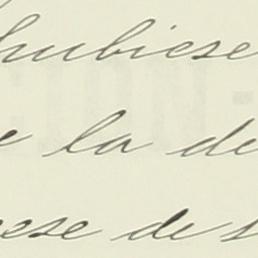 hubiese
la de
ese de s